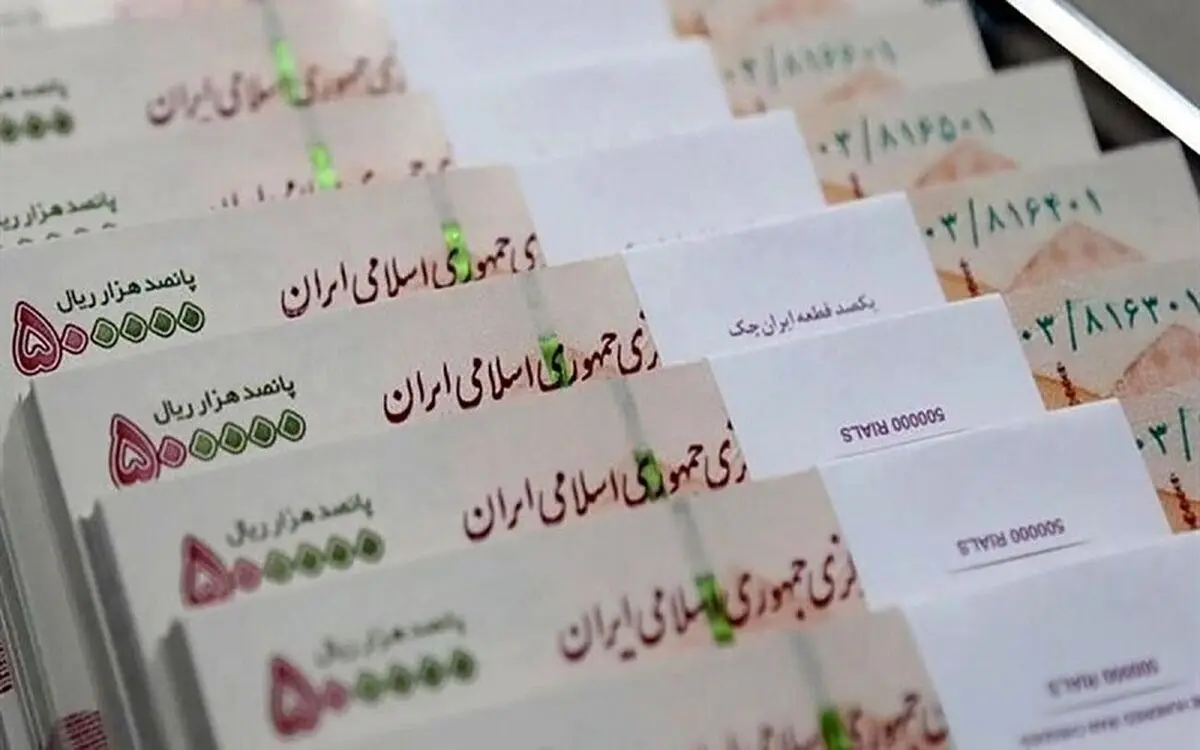 جمهوری اسلامی ایران
۰۳/۸۱۶۶۰۱
پانصد هزار ریال
۰۳/۸۱۶۵۰۱
پانصد هزار ریال
۵۰۰۰۰۰
جمهوری اسلامی ایران
۰۳/۸۱۶۴۰۱
پانصد هزار ریال
۵۰۰۰۰۰
جمهوری اسلامی ایران
یکصد قطعه ایران چک
۰۳/۸۱۶۳۰۱
پانصد هزار ریال
۵۰۰۰۰۰
جمهوری اسلامی ایران
500000 RIALS
۰۳/
پانصد هزار ریال
۵۰۰۰۰۰
جمهوری اسلامی ایران
500000 RIALS
جمهوری اسلامی
500000 RIALS